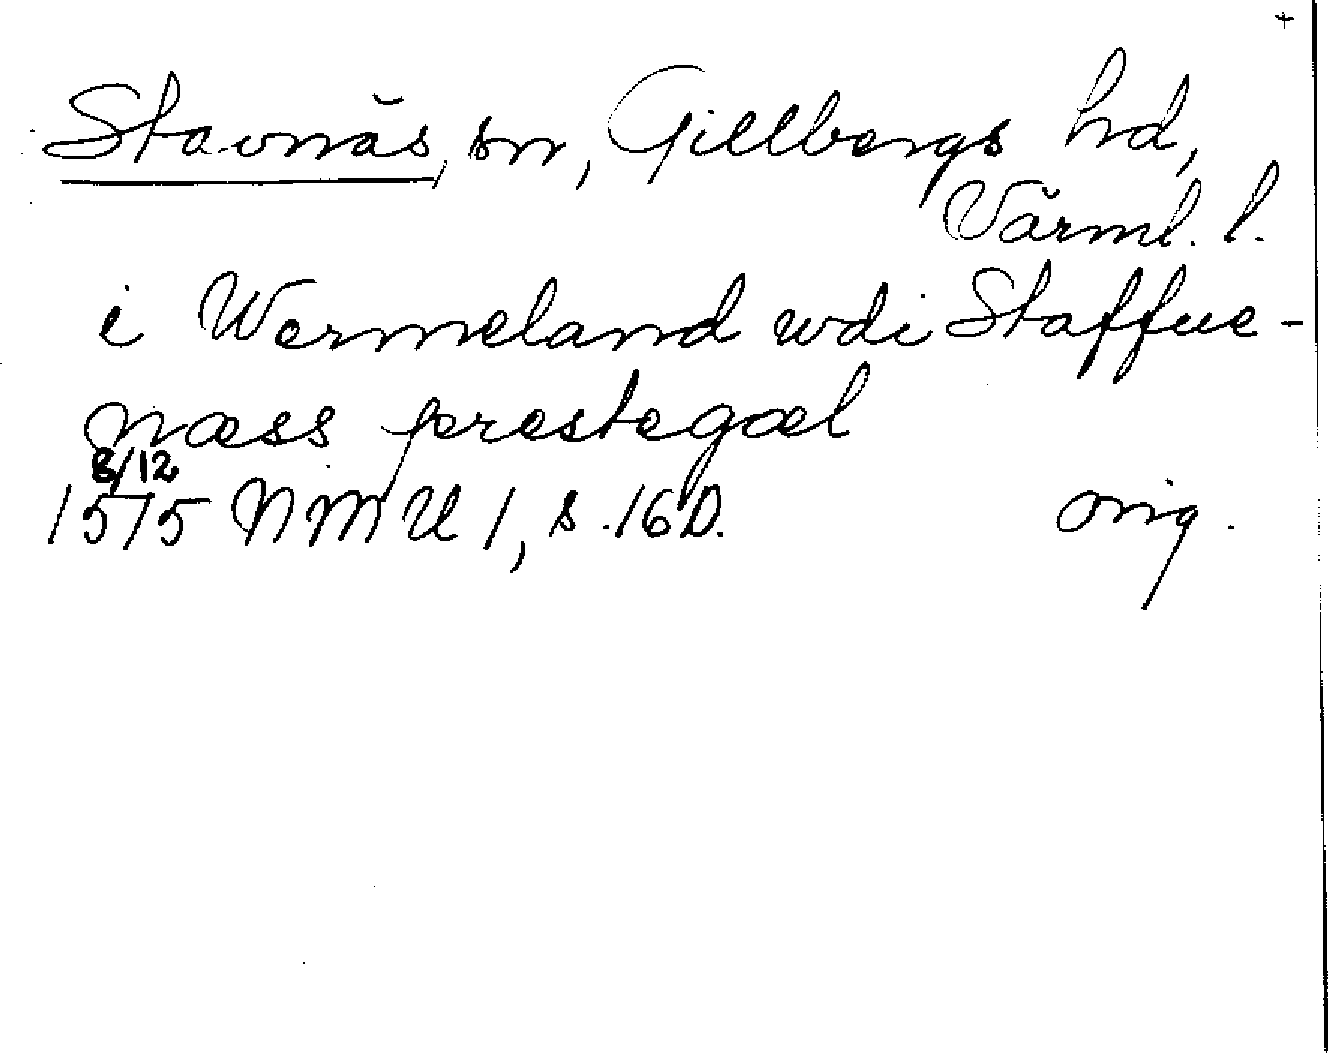 +
Stavnäs, sn, Gillbergs hd,
Värml. l.
i Wermeland wdi Staffue-
næss prestegæl
8/12
1575 NMU 1, s. 160. orig.